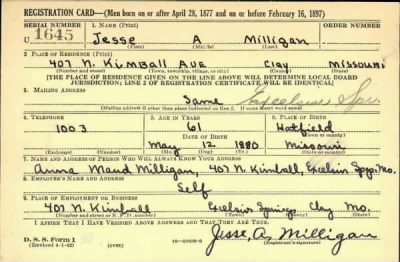 REGISTRATION CARD—(Men born on or after April 28, 1877 and on or before February 16, 1897)
SERIAL NUMBER 1. NAME (Print)
U 1645 Jesse A Milligan
(First) (Middle) (Last)
2. PLACE OF RESIDENCE (Print)
407 N. Kimball Ave Clay Missouri
(Number and street) (Town, township, village, or city) (County) (State)
[THE PLACE OF RESIDENCE GIVEN ON THE LINE ABOVE WILL DETERMINE LOCAL BOARD
JURISDICTION; LINE 2 OF REGISTRATION CERTIFICATE WILL BE IDENTICAL]
3. MAILING ADDRESS
Same Excelsior Spgs.
[Mailing address if other than place indicated on line 2. If same insert word same]
4. TELEPHONE 5. AGE IN YEARS 6. PLACE OF BIRTH
1003 61 Hatfield
DATE OF BIRTH (Town or county)
May 12 1880 Missouri
(Exchange) (Number) (Mo.) (Day) (Yr.) (State or country)
7. NAME AND ADDRESS OF PERSON WHO WILL ALWAYS KNOW YOUR ADDRESS
Anna Maud Milligan, 407 N. Kimball, Excelsior Spgs. Mo.
8. EMPLOYER'S NAME AND ADDRESS
Self
9. PLACE OF EMPLOYMENT OR BUSINESS
407 N. Kimball Excelsior Springs Clay Mo.
(Number and street or R. F. D. number) (Town) (County) (State)
I AFFIRM THAT I HAVE VERIFIED ABOVE ANSWERS AND THAT THEY ARE TRUE.
D. S. S. Form 1
(Revised 4-1-42) (over) Jesse, A, Milligan
(Registrant's signature)